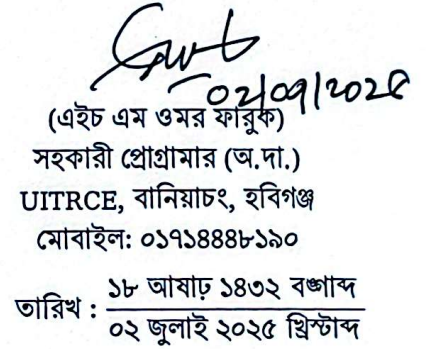 ০২/০৭/২০২৫
(এইচ এম ওমর ফারুক)
সহকারী প্রোগ্রামার (অ.দা.)
UITRCE, বানিয়াচং, হবিগঞ্জ
মোবাইল: ০১৭১৪৪৪৮১৯০
তারিখ : ১৮ আষাঢ় ১৪৩২ বঙ্গাব্দ
০২ জুলাই ২০২৫ খ্রিস্টাব্দ